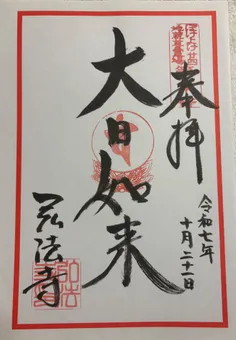 奉拝
大日如来
令和七年
十月二十一日
弘法寺